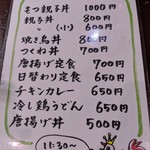 もつ親子丼 1000円
親子丼 800円
〃 (小) 600円
焼き鳥丼 800円
つくね丼 700円
唐揚げ定食 700円
日替わり定食 650円
チキンカレー 650円
冷し鶏うどん 650円
唐揚げ丼 500円
11:30〜